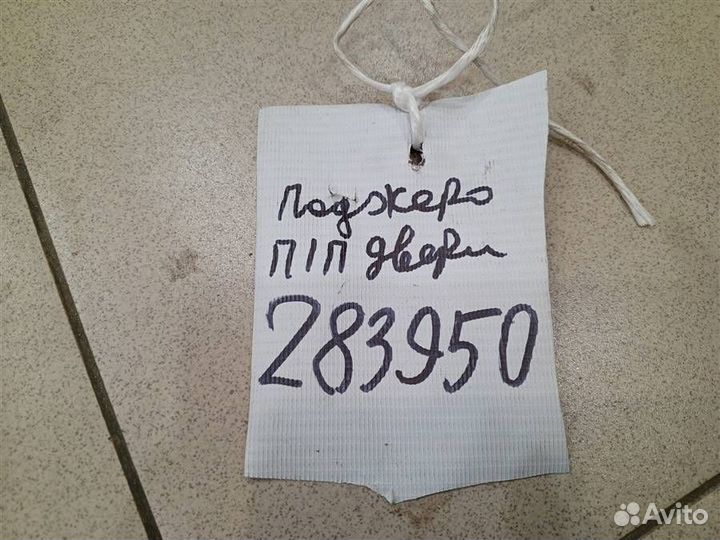 Паджеро
П/П двери
283950
Avito